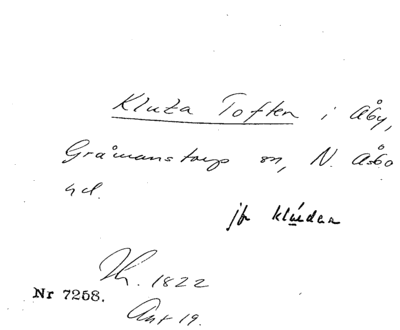 Kluta Toften i Åby,
Gråmanstorp sn, N. Åsbo
hd.
jfr klúdan
Th. 1822
Nr 7258.
Ant 19.